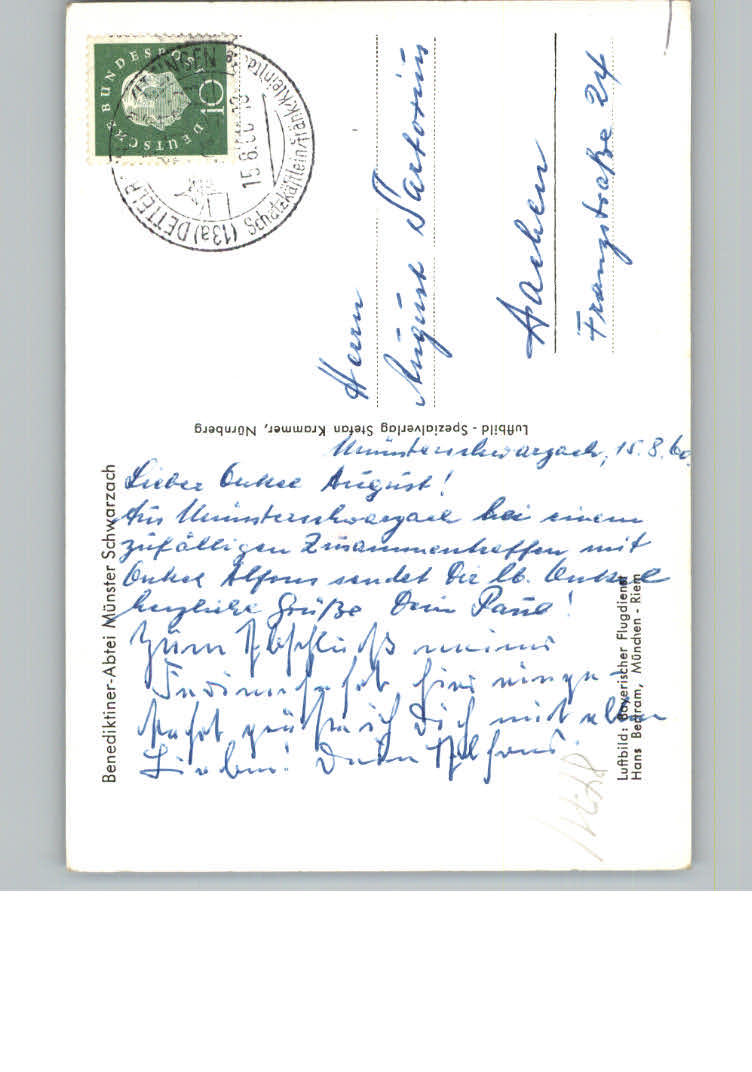 DEUTSCHE BUNDESPOST
10
(13a) DETTELB
Schatzkästlein
15.8.60
Herrn
August Sartorius
Aachen
Franzstraße 24
Luftbild-Spezialverlag Stefan Krammer, Nürnberg
Benediktiner-Abtei Münster Schwarzach
Münsterschwarzach, 15.8.60
Lieber Onkel August!
Aus Münsterschwarzach bei einem
zufälligen Zusammentreffen mit
Onkel Alfons sendet Dir lb. Onkel
herzliche Grüße Dein Paul!
Zum Abschluß meiner
hier
grüße ich Dich mit allen
Lieben! Dein Alfons.
Luftbild: Bayerischer Flugdienst
Hans Bertram, München-Riem